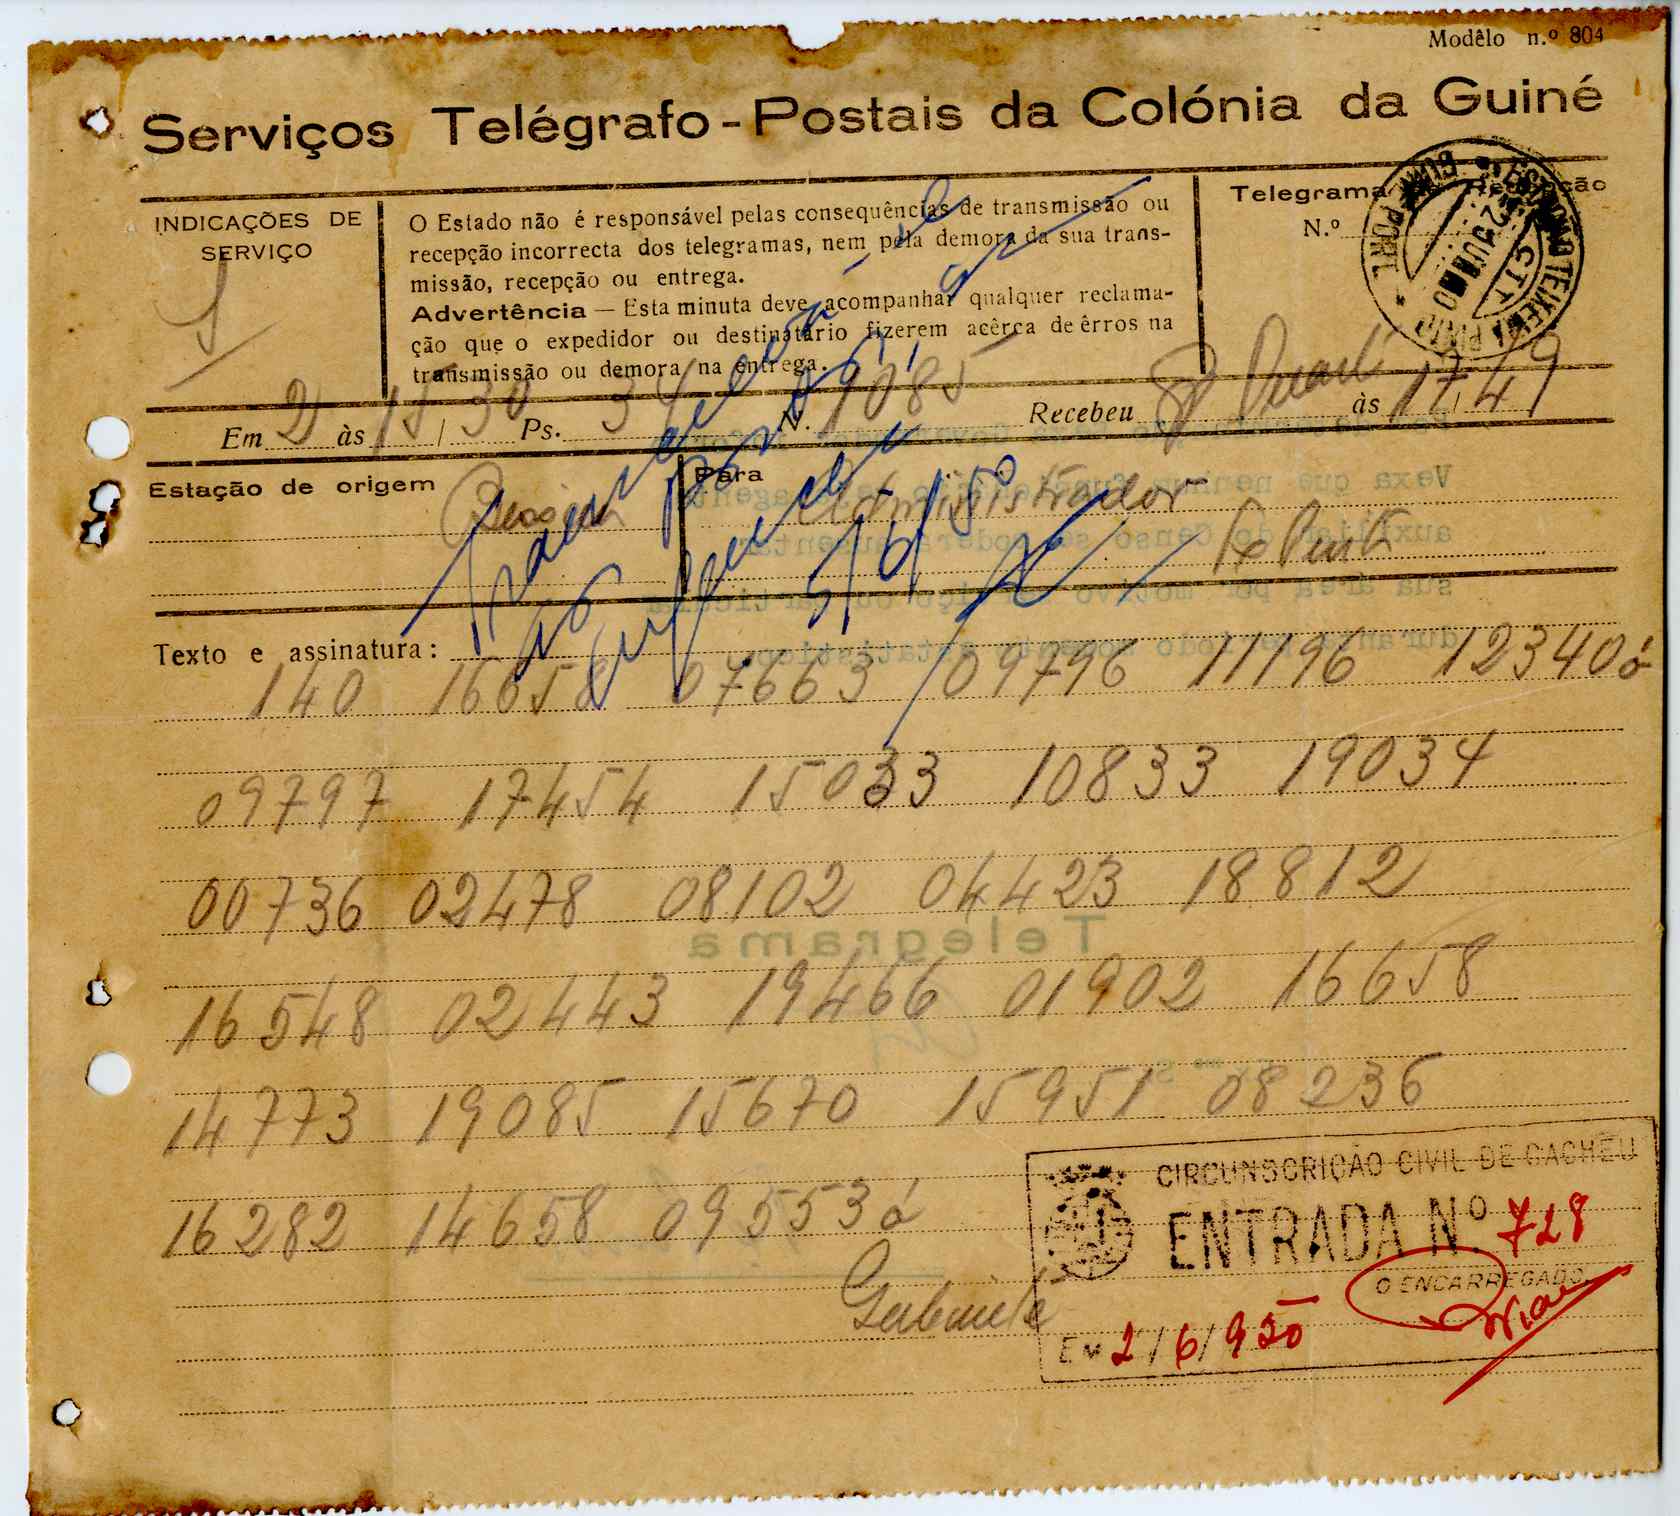 Modêlo n.º 804
Serviços Telégrafo-Postais da Colónia da Guiné
INDICAÇÕES DE SERVIÇO
S
O Estado não é responsável pelas consequências de transmissão ou
recepção incorrecta dos telegramas, nem pela demora da sua trans-
missão, recepção ou entrega.
Advertência — Esta minuta deve acompanhar qualquer reclama-
ção que o expedidor ou destinatário fizerem acêrca de êrros na
transmissão ou demora na entrega.
Telegrama Recepção
N.º
CTT
Em 2 às 15/30 Ps. 34 N. 19085 Recebeu às 17/49
Estação de origem Bissau
Para Administrador
5/6/50
Texto e assinatura:
140 16658 07663 09796 11196 12340
09797 17454 15033 10833 19034
00736 02478 08102 04423 18812
16548 02443 19466 01902 16658
14773 19085 15670 15951 08236
16282 14658 09553
Gabinete
CIRCUNSCRIÇÃO CIVIL DE CACHEU
ENTRADA N.º 728
O ENCARREGADO,
EM 2/6/950
Telegrama